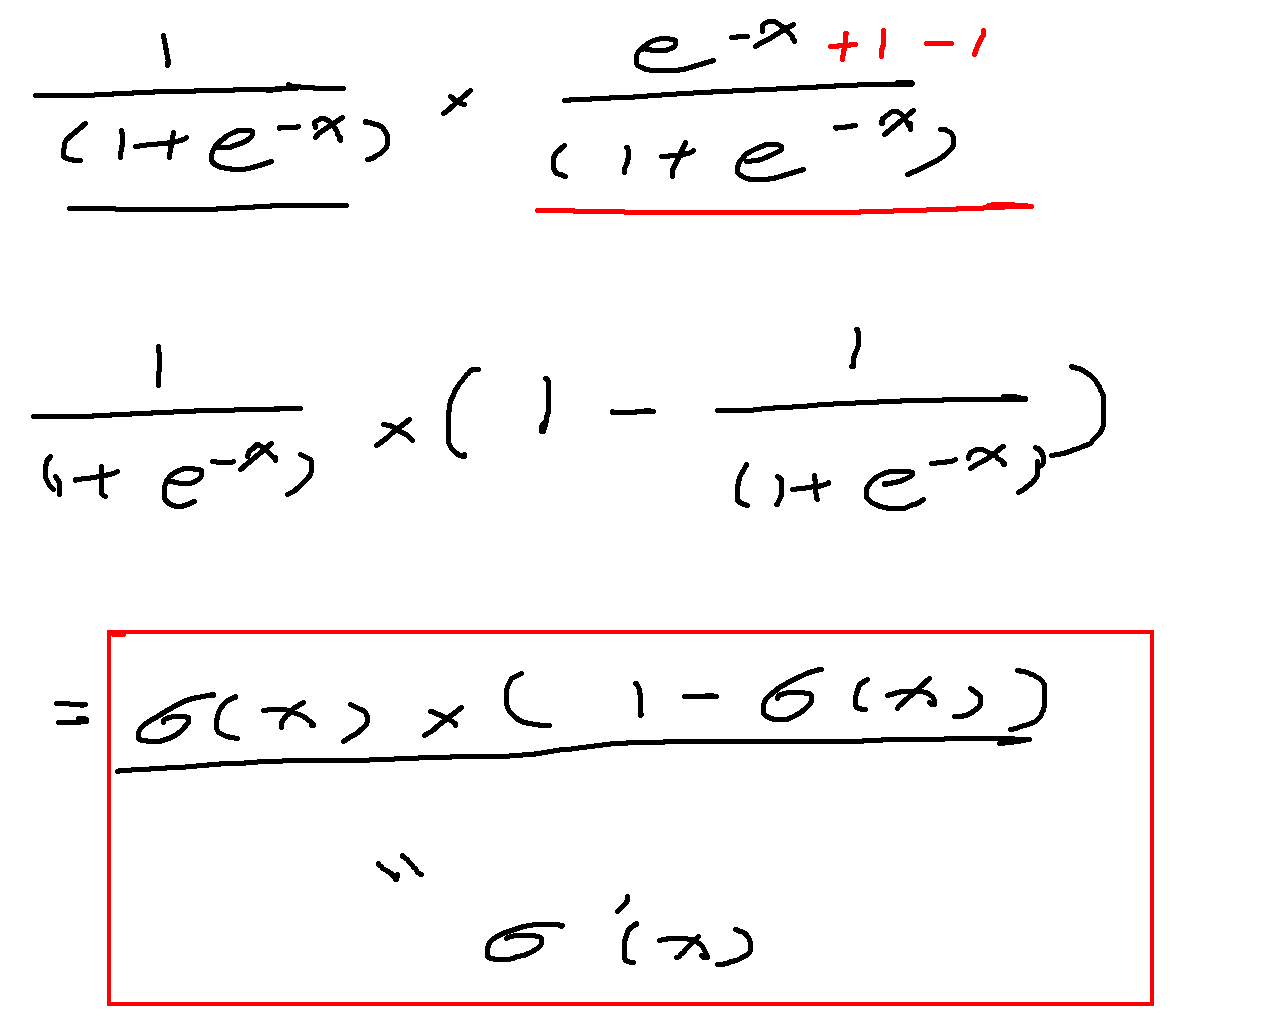 1/(1+e^{-x}) × (e^{-x} +1 -1)/(1+e^{-x})
1/(1+e^{-x}) × ( 1 - 1/(1+e^{-x}) )
= σ(x) × ( 1 - σ(x) )
"
σ'(x)